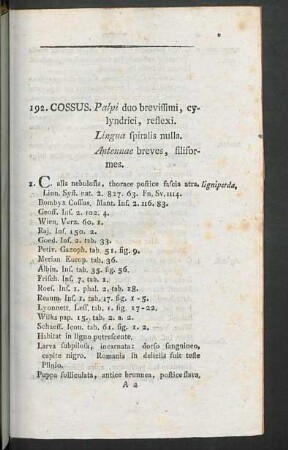 192. COSSUS. Palpi duo brevissimi, cy-
lyndrici, reflexi.
Lingua spiralis nulla.
Antennae breves, filifor-
mes.
1. C. alis nebulosis, thorace postice fascia atra. ligniperda,
Linn. Syst. nat. 2. 827. 63. Fn. Sv. 1114.
Bombyx Cossus, Mant. Ins. 2. 116. 83.
Geoff. Ins. 2. 102. 4.
Wien. Verz. 60. 1.
Raj. Ins. 150. 2.
Goed. Ins. 2. tab. 33.
Petiv. Gazoph. tab. 51. fig. 9.
Merian Europ. tab. 36.
Albin. Ins. tab. 35. fig. 56.
Frisch. Ins. 7. tab. 1.
Roes. Ins. 1. phal. 2. tab. 18.
Reaum. Ins. 1. tab. 17. fig. 1-5.
Lyonnett. Less. tab. 1. fig. 17-22.
Wilks pap. 15. tab. 2. a. 2.
Schaeff. Icon. tab. 61. fig. 1. 2.
Habitat in ligno putrescente,
Larva subpilosa, incarnata: dorso sanguineo,
capite nigro. Romanis in deliciis fuit teste
Plinio.
Puppa folliculata, antice brunnea, postice flava,
A 2